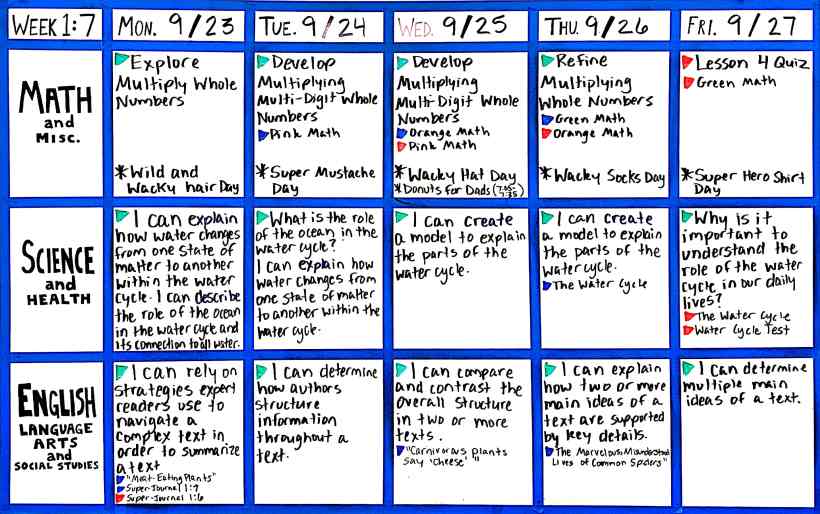 WEEK 1:7
MON. 9/23
TUE. 9/24
WED. 9/25
THU. 9/26
FRI. 9/27
MATH
and
MISC.
Explore
Multiply Whole
Numbers
*Wild and
Wacky hair Day
Develop
Multiplying
Multi-Digit Whole
Numbers
Pink Math
*Super Mustache
Day
Develop
Multiplying
Multi-Digit Whole
Numbers
Orange Math
Pink Math
*Wacky Hat Day
*Donuts for Dads (7:05-
7:35)
Refine
Multiplying
Whole Numbers
Green Math
Orange Math
*Wacky Socks Day
Lesson 4 Quiz
Green Math
*Super Hero Shirt
Day
SCIENCE
and
HEALTH
I can explain
how water changes
from one state of
matter to another
within the water
cycle. I can describe
the role of the ocean
in the water cycle and
its connection to all water.
What is the role
of the ocean in the
water cycle?
I can explain how
water changes from
one state of matter
to another within the
water cycle.
I can create
a model to explain
the parts of the
water cycle.
I can create
a model to explain
the parts of the
water cycle.
The Water Cycle
Why is it
important to
understand the
role of the water
cycle in our daily
lives?
The Water Cycle
Water Cycle Test
ENGLISH
LANGUAGE
ARTS
and
SOCIAL STUDIES
I can rely on
strategies expert
readers use to
navigate a
complex text in
order to summarize
a text
"Meat-Eating Plants"
Super-Journal 1:7
Super-Journal 1:6
I can determine
how authors
structure
information
throughout a
text.
I can compare
and contrast the
overall structure
in two or more
texts.
"Carnivorous plants
say 'cheese'"
I can explain
how two or more
main ideas of a
text are supported
by key details.
The Marvelous, Misunderstood
Lives of Common Spiders"
I can determine
multiple main
ideas of a text.